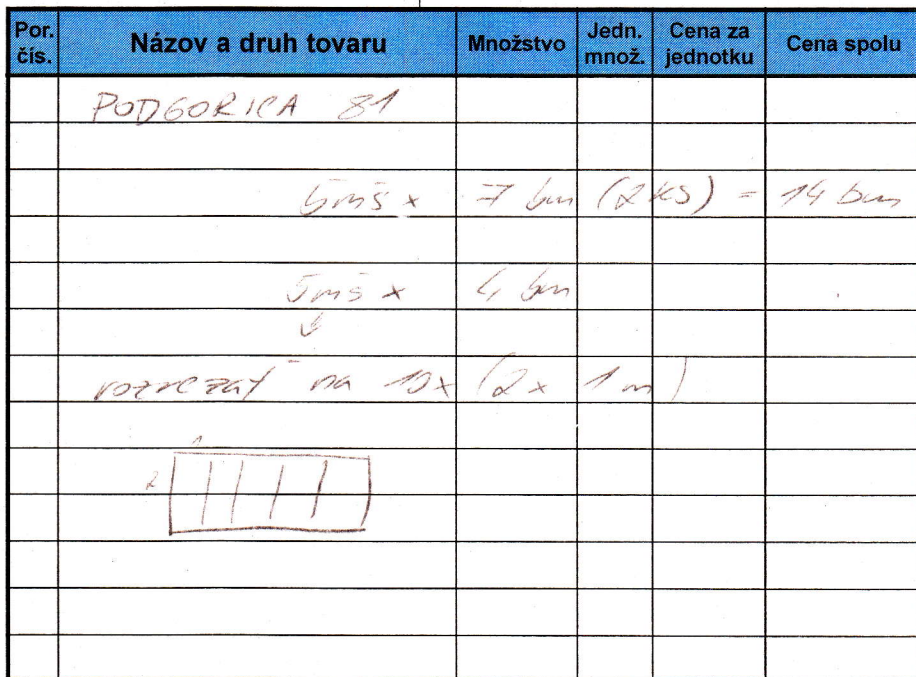 Por. čís. Názov a druh tovaru Množstvo Jedn. množ. Cena za jednotku Cena spolu
PODGORICA 81
5mš x 7 bm (2 ks) = 14 bm
5mš x 4 bm
rozrezať na 10x (2x 1m)
1
2